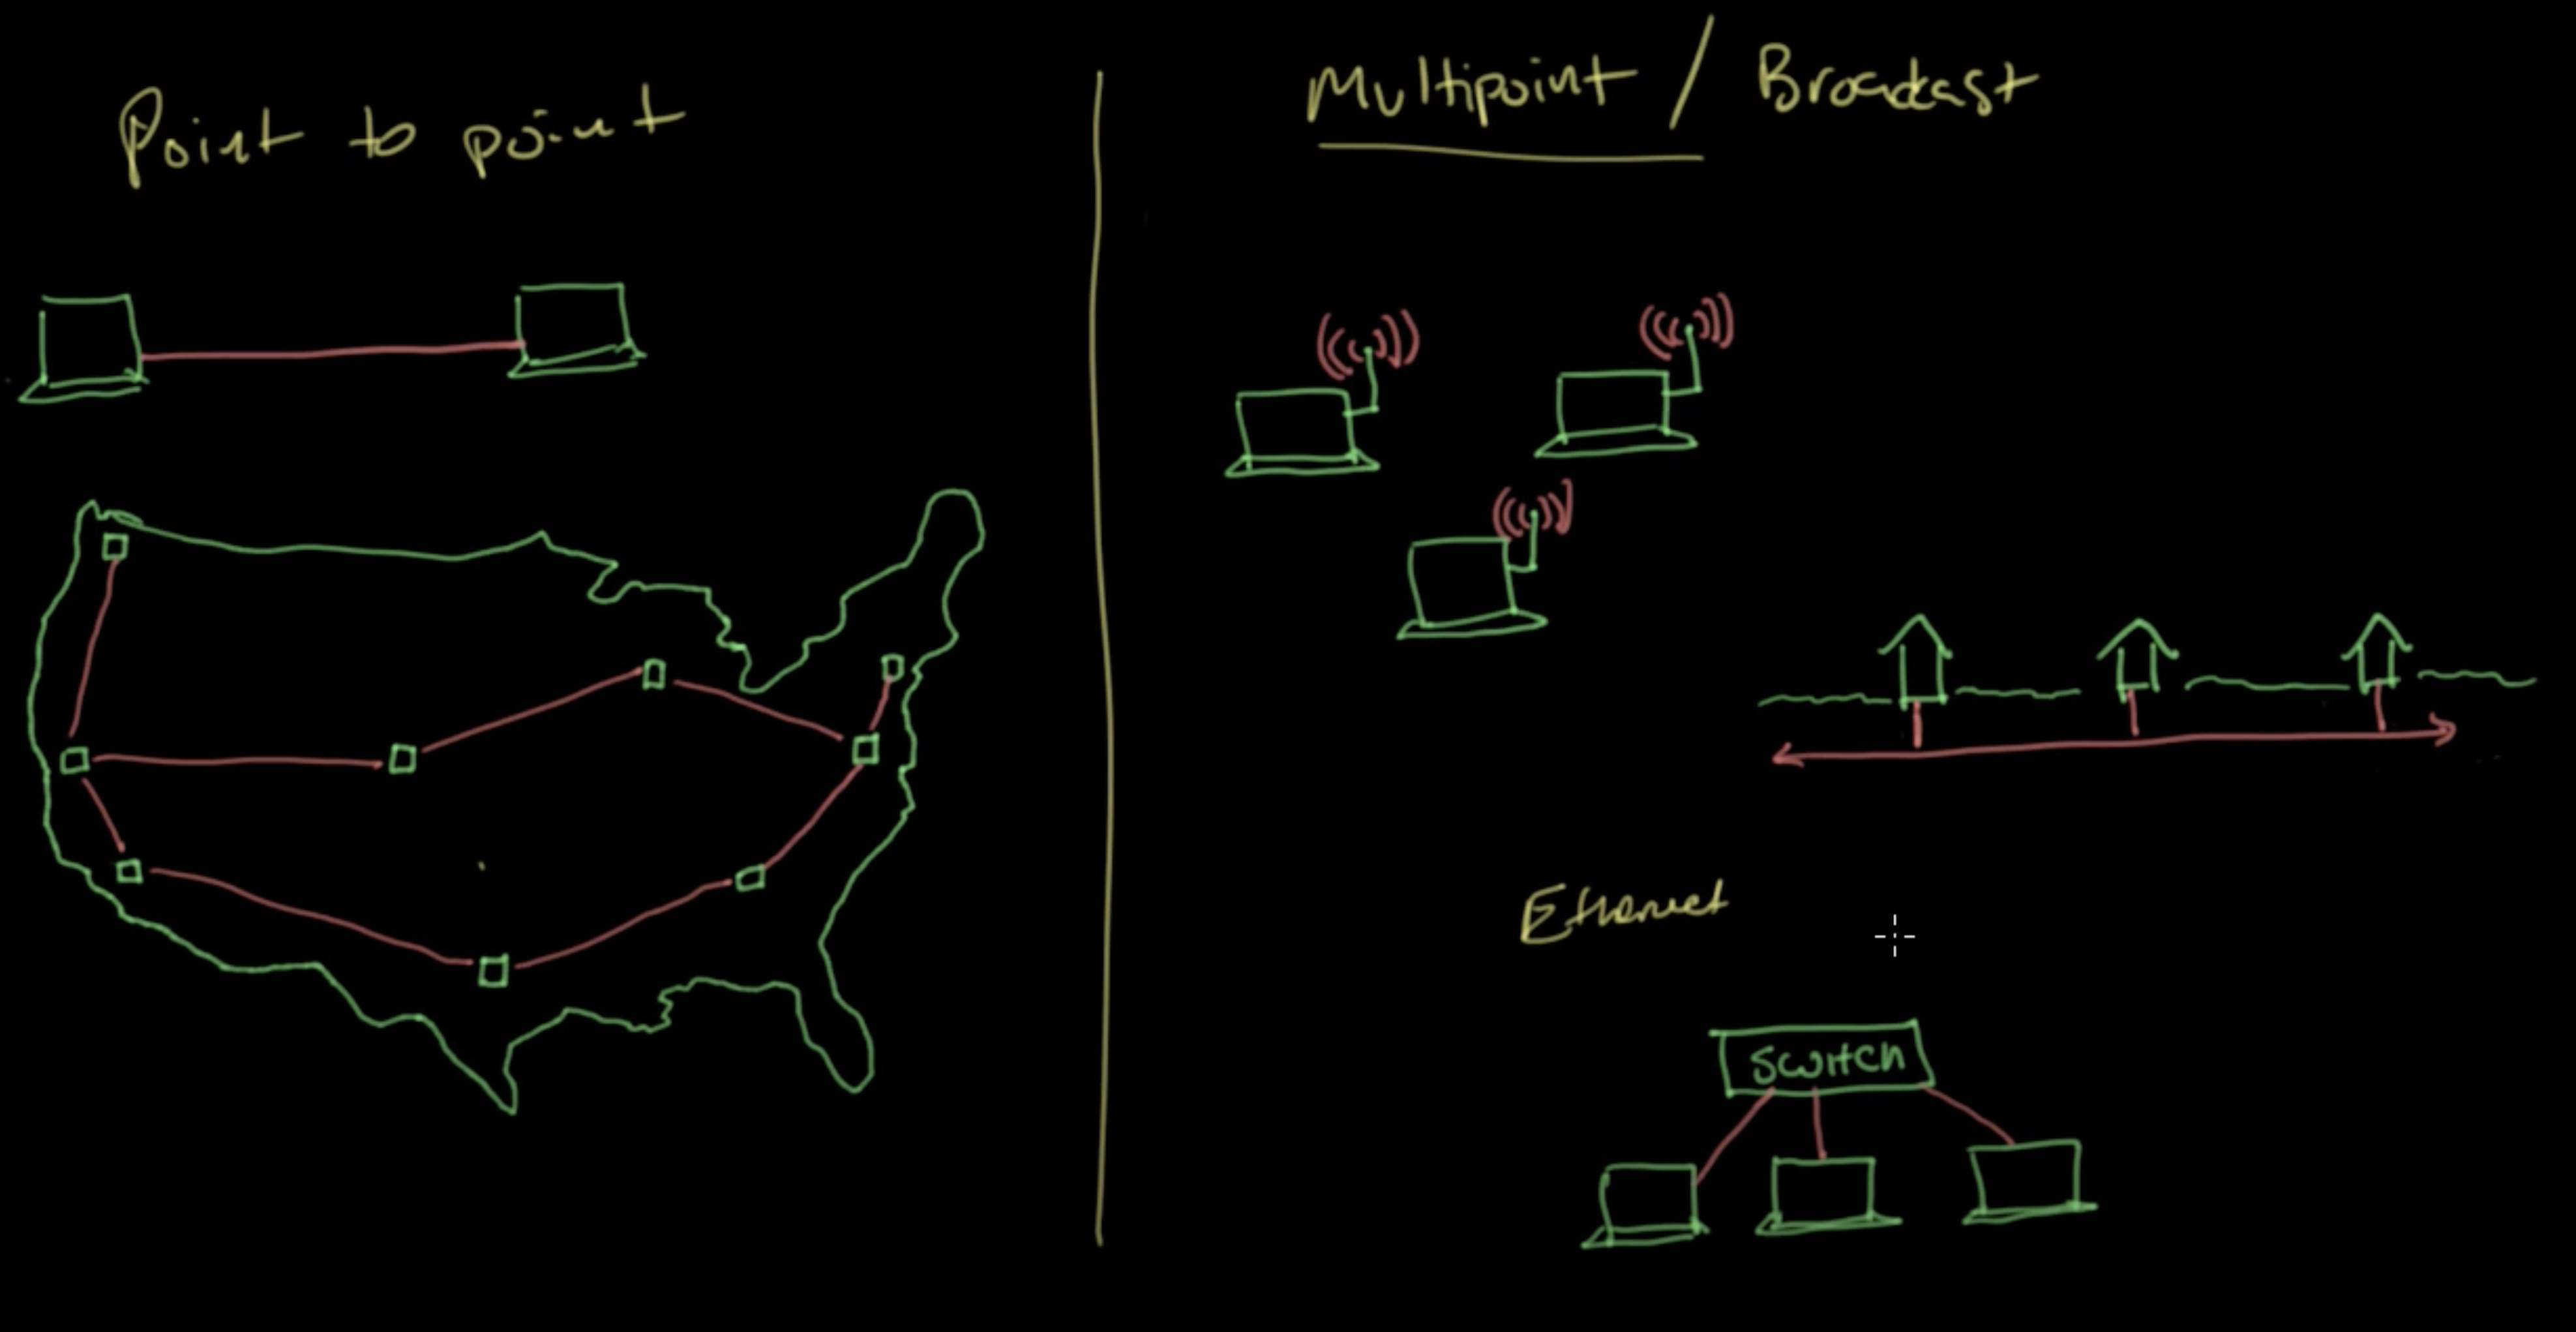 Point to point
Multipoint / Broadcast
Ethernet
Switch